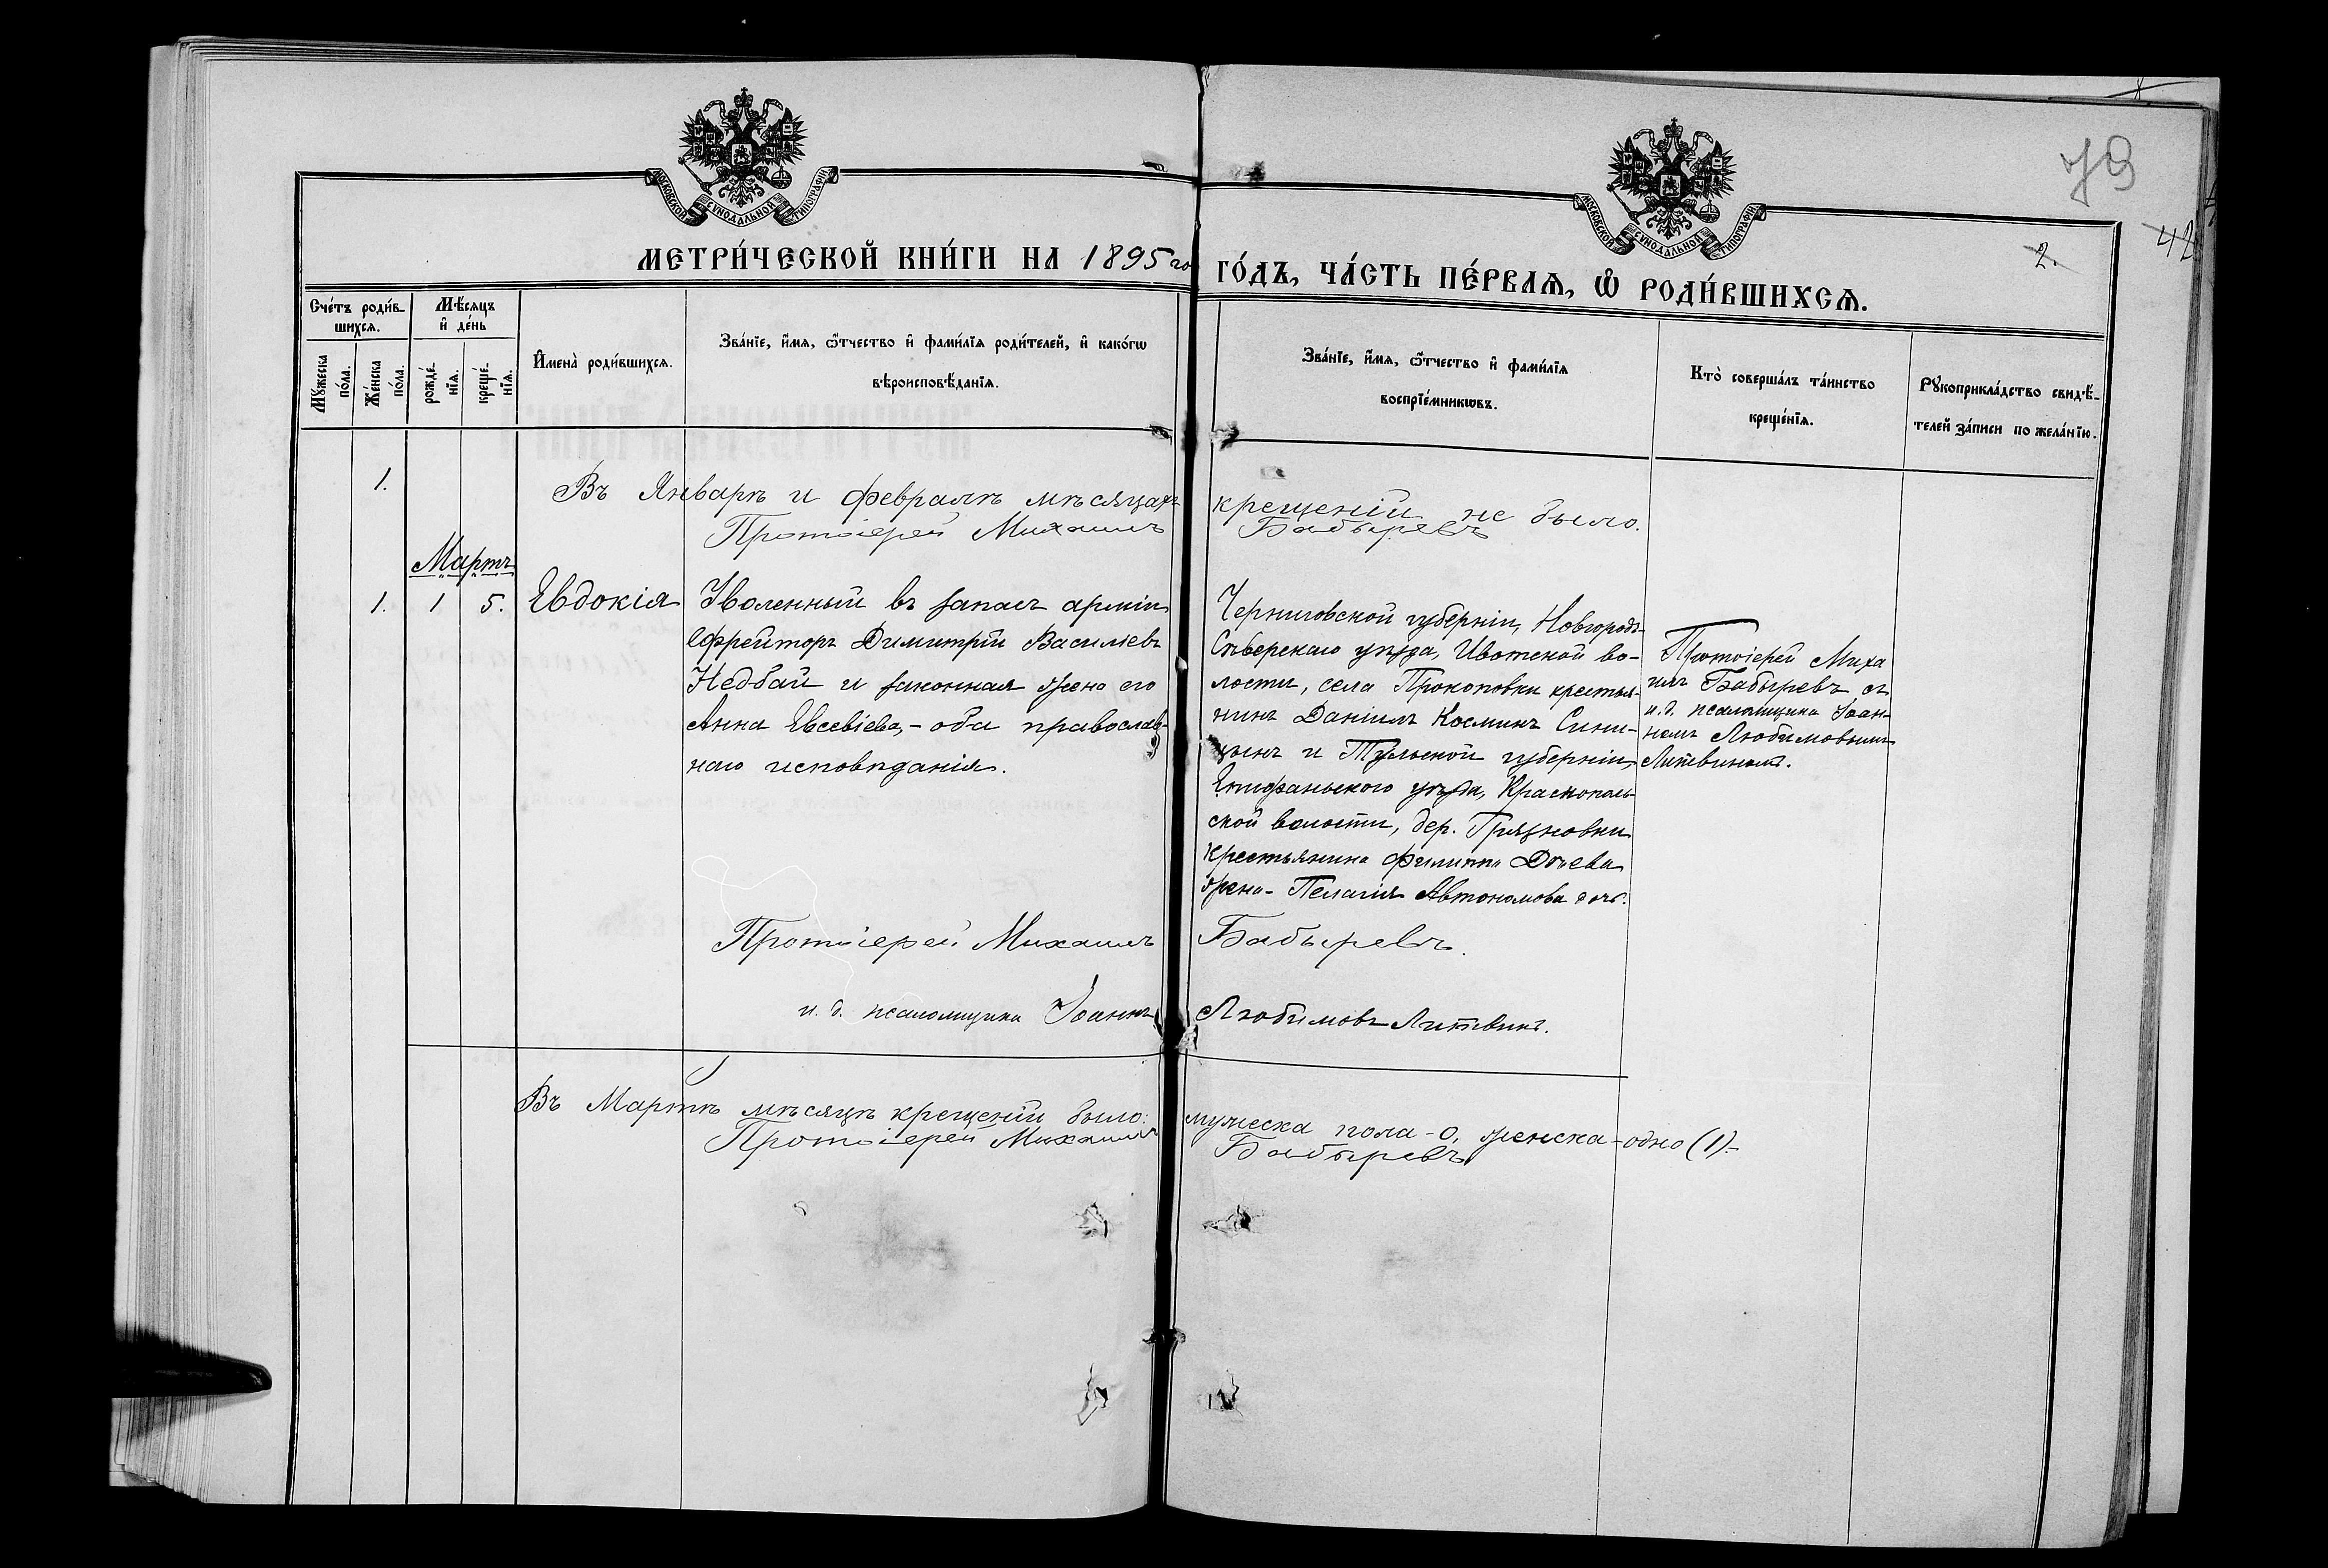 79
42
2.
МОСКОВСКОЙ СѴНОДАЛЬНОЙ ТИПОГРАФІИ
МОСКОВСКОЙ СѴНОДАЛЬНОЙ ТИПОГРАФІИ
МЕТРИ́ЧЕСКОЙ КНИ́ГИ НА 1895 го ГО́ДЪ, ЧА́СТЬ ПЕ́РВАѦ, Ѡ҆ РОДИ́ВШИХСѦ.
Сче́тъ роди́в-
шихсѧ.
Мꙋ́жеска
по́ла.
Же́нска
по́ла.
Мѣ́сѧцъ
и҆ де́нь
рожде́-
нїѧ.
креще́-
нїѧ.
И҆мена̀ роди́вшихсѧ.
Зва́нїе, и҆́мѧ, ѻ҆́тчество и҆ фами́лїѧ роди́телей, и҆ како́гѡ
вѣроисповѣ́данїѧ.
Зва́нїе, и҆́мѧ, ѻ҆́тчество и҆ фами́лїѧ
воспрїе́мникѡвъ.
Кто̀ соверша́лъ та́инство
креще́нїѧ.
Рꙋкоприкла́дство свидѣ́-
телей за́писи по жела́нїю.
1.
Въ Январѣ и Февралѣ мѣсяцахъ крещеній не было.
Протоіерей Михаилъ Бабыревъ
Мартъ
1. 1 5. Евдокія
Уволенный въ запасъ арміи
Ефрейторъ Димитрій Василіевъ
Недбай и законная жена его
Анна Евсевіева, - оба православ-
наго исповѣданія.
Черниговской губерніи, Новгородъ-
Сѣверскаго уѣзда, Ивотской во-
лости, села Прокоповки крестья-
нинъ Даніилъ Косминъ Сини-
цынъ и Тульской губерніи,
Епифаньского уѣзда, Краснополь-
ской волости, дер. Грязновки
крестьянина Филиппа
жена - Пелагія Автономова дочь.
Протоіерей Миха
илъ Бабыревъ съ
и. д. псаломщика Іоан-
номъ Любимовымъ
Литвиномъ.
Протоіерей Михаилъ Бабыревъ.
и. д. псаломщика Іоаннъ Любимовъ Литвинъ.
Въ Мартѣ мѣсяцѣ крещеній было: мужеска пола - 0, женска - одно (1).-
Протоіерей Михаилъ Бабыревъ